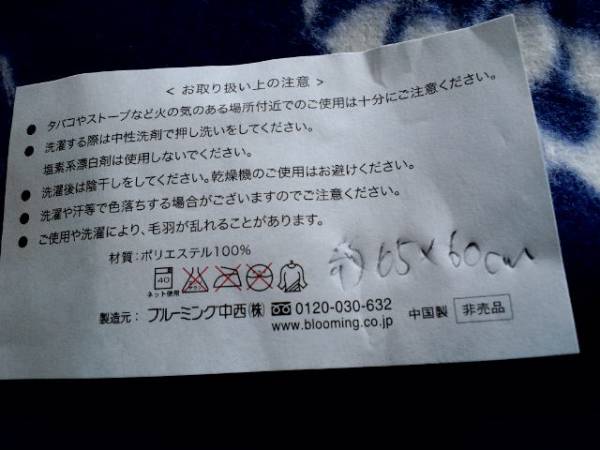 < お取り扱い上の注意 >
● タバコやストーブなど火の気のある場所付近でのご使用は十分にご注意ください。
● 洗濯する際は中性洗剤で押し洗いをしてください。
塩素系漂白剤は使用しないでください。
● 洗濯後は陰干しをしてください。乾燥機のご使用はお避けください。
● 洗濯や汗等で色落ちする場合がございますのでご注意ください。
● ご使用や洗濯により、毛羽が乱れることがあります。
材質：ポリエステル100%
約65×60cm
40
ネット使用
製造元： ブルーミング中西(株) 0120-030-632
www.blooming.co.jp
中国製 非売品